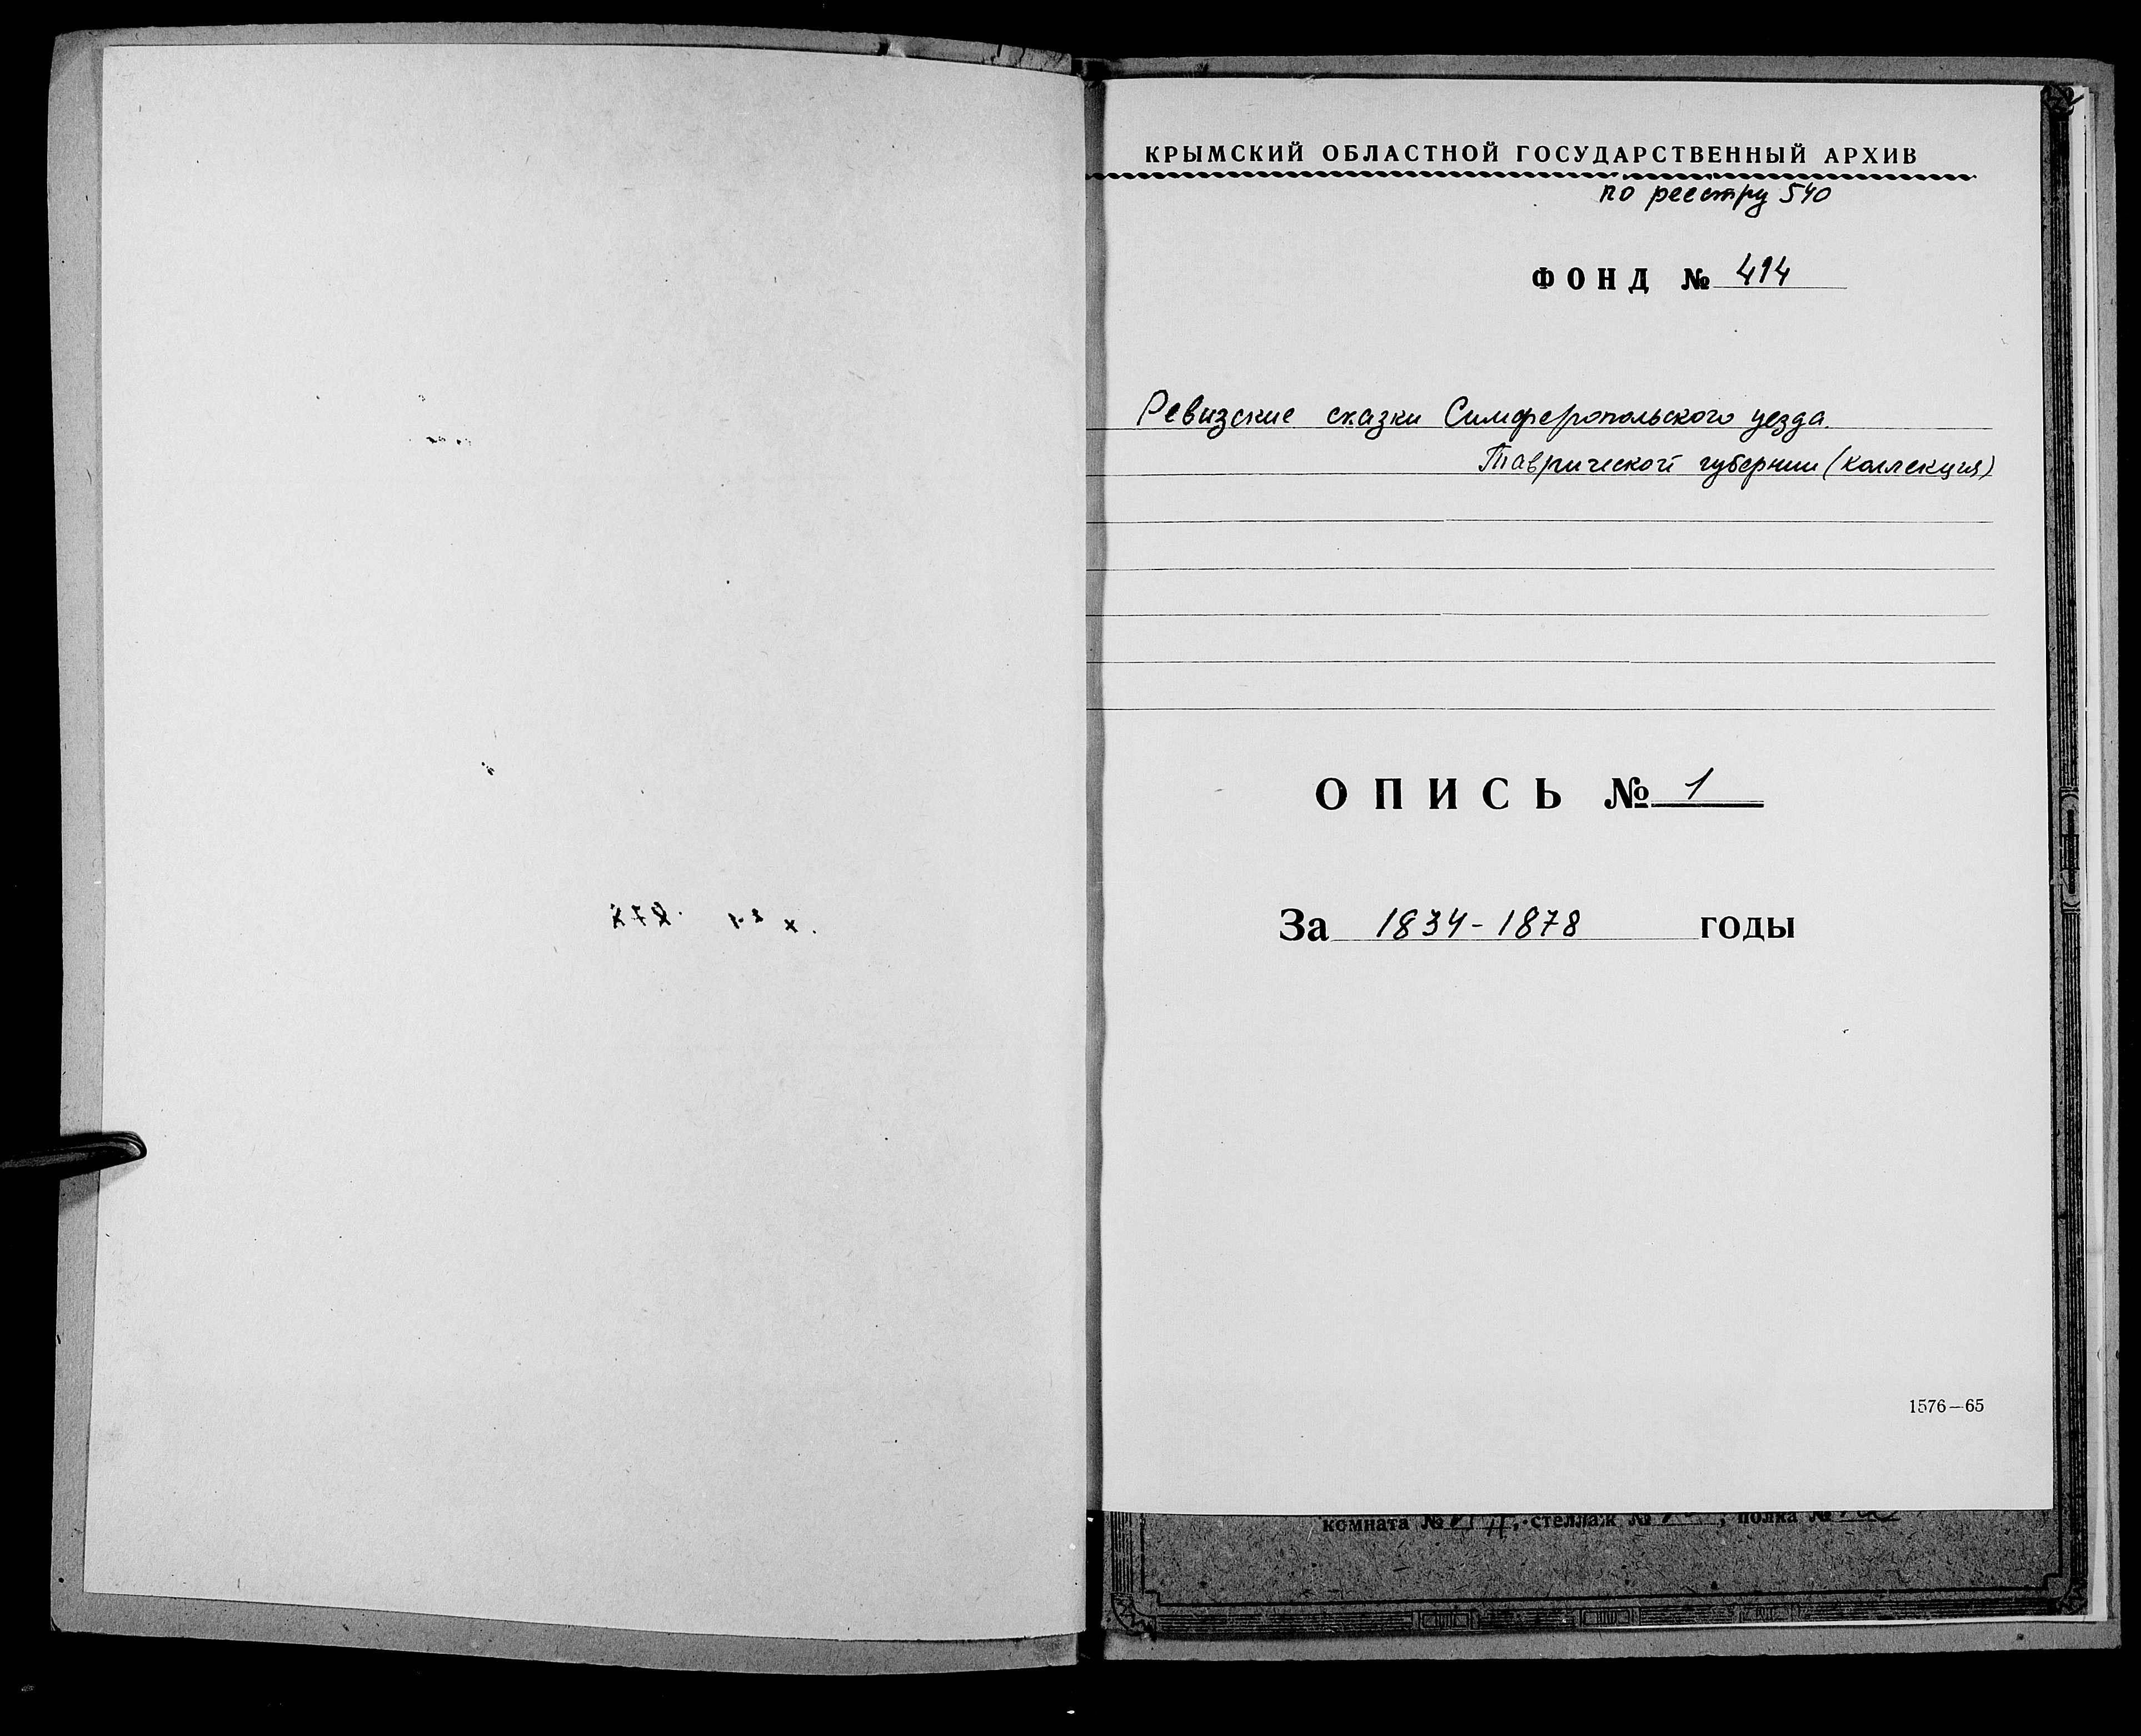 КРЫМСКИЙ ОБЛАСТНОЙ ГОСУДАРСТВЕННЫЙ АРХИВ
по реестру 540
ФОНД № 414
Ревизские сказки Симферопольского уезда
Таврической губернии (коллекция)
ОПИСЬ № 1
За 1834-1878 годы
1576—65
комната № стеллаж № , полка №